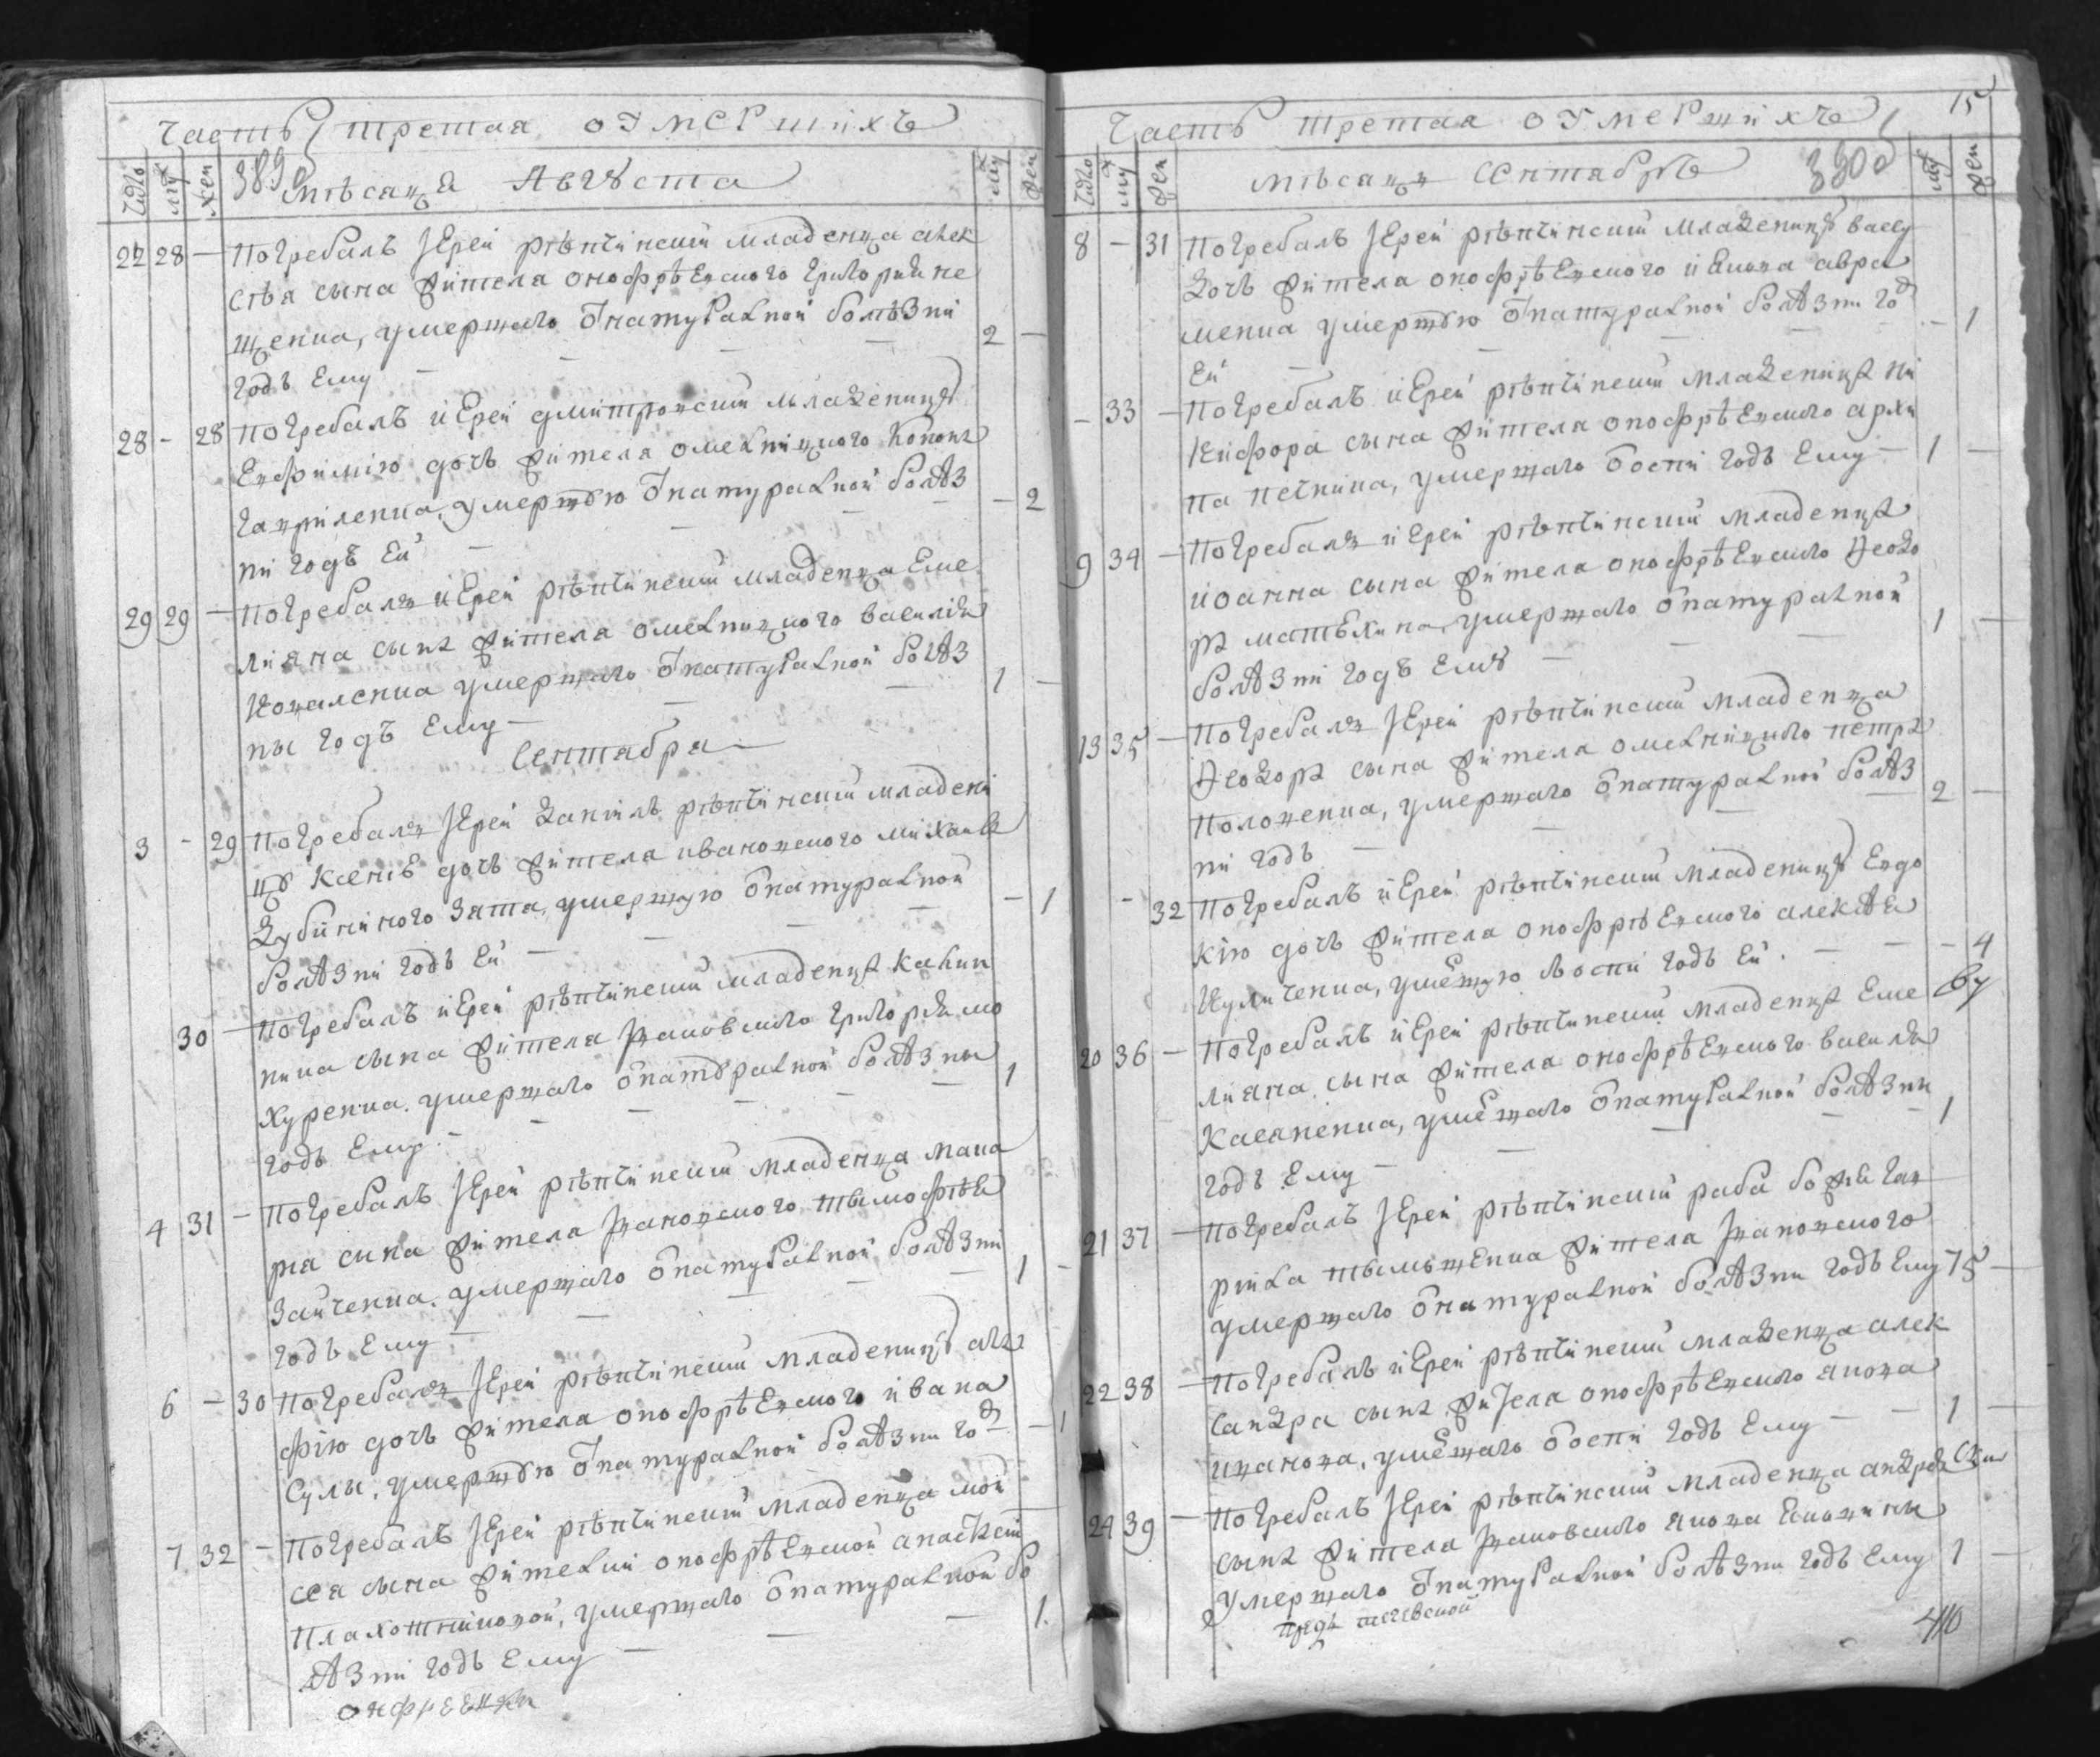 Часть третая о умершихъ
число муж жен 389 месяца Августа муж жен
22 28 — Погребалъ Іерей рѣпчинский младенца алек
сѣя сына жителя онофрѣевского григория не
щенка, умершаго от натуралной болѣзни
годъ ему — 2 —
28 — 28 Погребалъ иерей дмитровский младеницу
Евфимию дочь жителя омелницкого
гавриленка, умершую от натуралной болѣз
ни годъ ей — 2
29 29 — Погребалъ иерей рѣпчинский младенца Еме
лияна сына жителя омелницкого василия
коваленка умершаго от натуралной болѣз
ны годъ ему — 1 —
Сентября
3 — 29 Погребалъ Іерей Данііль рѣпчинский младени
цу Ксенію дочь жителя ивановского михаила
зята, умершую от натуралной
болѣзни годъ ей — 1
30 — Погребалъ иерей рѣпчинский младенца
сына жителя ивановского григория мо
хуренка, умершаго от натуралной болѣзны
годъ ему — 1
4 31 — Погребалъ Іерей рѣпчинский младенца мака
ра сина жителя ивановского тымофѣя
Зайченка, умершаго от натуралной болѣзни
годъ ему — 1 —
6 — 30 Погребалъ Іерей рѣпчинский младеницу ага
фію дочь жителя онофрѣевского ивана
Сулы, умершую от натуралной болѣзни год — 1
7 32 — Погребалъ Іерей рѣпчинский младенца мой
сея сына жителки онофрѣевской
Плахотниковой, умершаго от натуралной бо
лѣзни годъ ему — 1

Часть третая о умершихъ 15
число муж жен месяца Сентябръ муж жен
8 — 31 Погребалъ Іерей рѣпчинский младеницу васу
дочь жителя онофрѣевского иякова авра
менка умершую от натуралной болѣзни год
ей — 1
— 33 — Погребалъ иерей рѣпчинский младенца ни
кифора сына жителя онофрѣевского архи
па печкина, умершаго от оспи годъ ему — 1 —
9 34 — Погребалъ иерей рѣпчинский младенца
иоанна сына жителя онофрѣевского Феодо
ра умершаго от натуралной
болѣзни годъ ему — 1 —
13 35 — Погребалъ Іерей рѣпчинский младенца
Феодора сына жителя омелницкого петра
Положенка, умершаго от натуралной болѣз
ни годъ — 2 —
— 32 Погребалъ иерей рѣпчинский младеницу Евдо
кію дочь жителя онофрѣевского алексѣя
Куличенка, умершую от оспи годъ ей — 4
20 36 — Погребалъ иерей рѣпчинский младенца Еме
лияна сына жителя онофрѣевского василя
Касяненка, умершаго от натуралной болѣзни
годъ ему — 1
21 37 — Погребалъ Іерей рѣпчинский раба божия гав
рийла жителя ивановского
умершаго от натуралной болѣзни годъ ему 75 —
22 38 — Погребалъ иерей рѣпчинский младенца алек
сандра сына жителя онофрѣевского якова
иванова, умершаго от оспи годъ ему — 1 —
24 39 — Погребалъ Іерей рѣпчинский младенца андрея
сына жителя ивановского якова
умершаго от натуралной болѣзни годъ ему 1 —